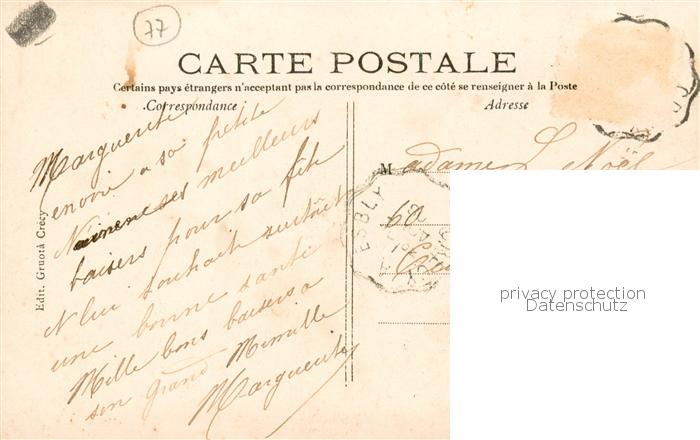 77
CARTE POSTALE
Certains pays étrangers n'acceptant pas la correspondance de ce côté se renseigner à la Poste
Correspondance
Adresse
Marguerite
envoie a sa petite
ses meilleurs
baisers pour sa fête
lui souhait surtout
une bonne santé
Mille bons baisers a
son grand Mimille
Marguerite
Madame L Noël
60
ESBLY
Edit. Gruotà Crécy
privacy protection
Datenschutz